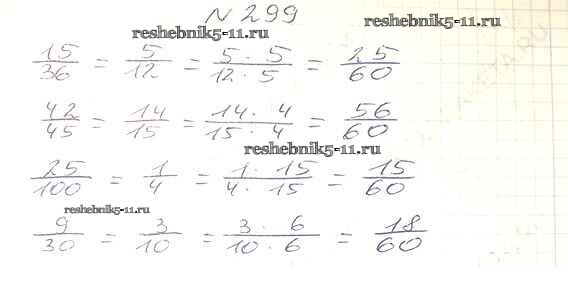 N 299
reshebnik5-11.ru
reshebnik5-11.ru
15/36 = 5/12 = 5 · 5/12 · 5 = 25/60
42/45 = 14/15 = 14 · 4/15 · 4 = 56/60
reshebnik5-11.ru
25/100 = 1/4 = 1 · 15/4 · 15 = 15/60
reshebnik5-11.ru
9/30 = 3/10 = 3 · 6/10 · 6 = 18/60